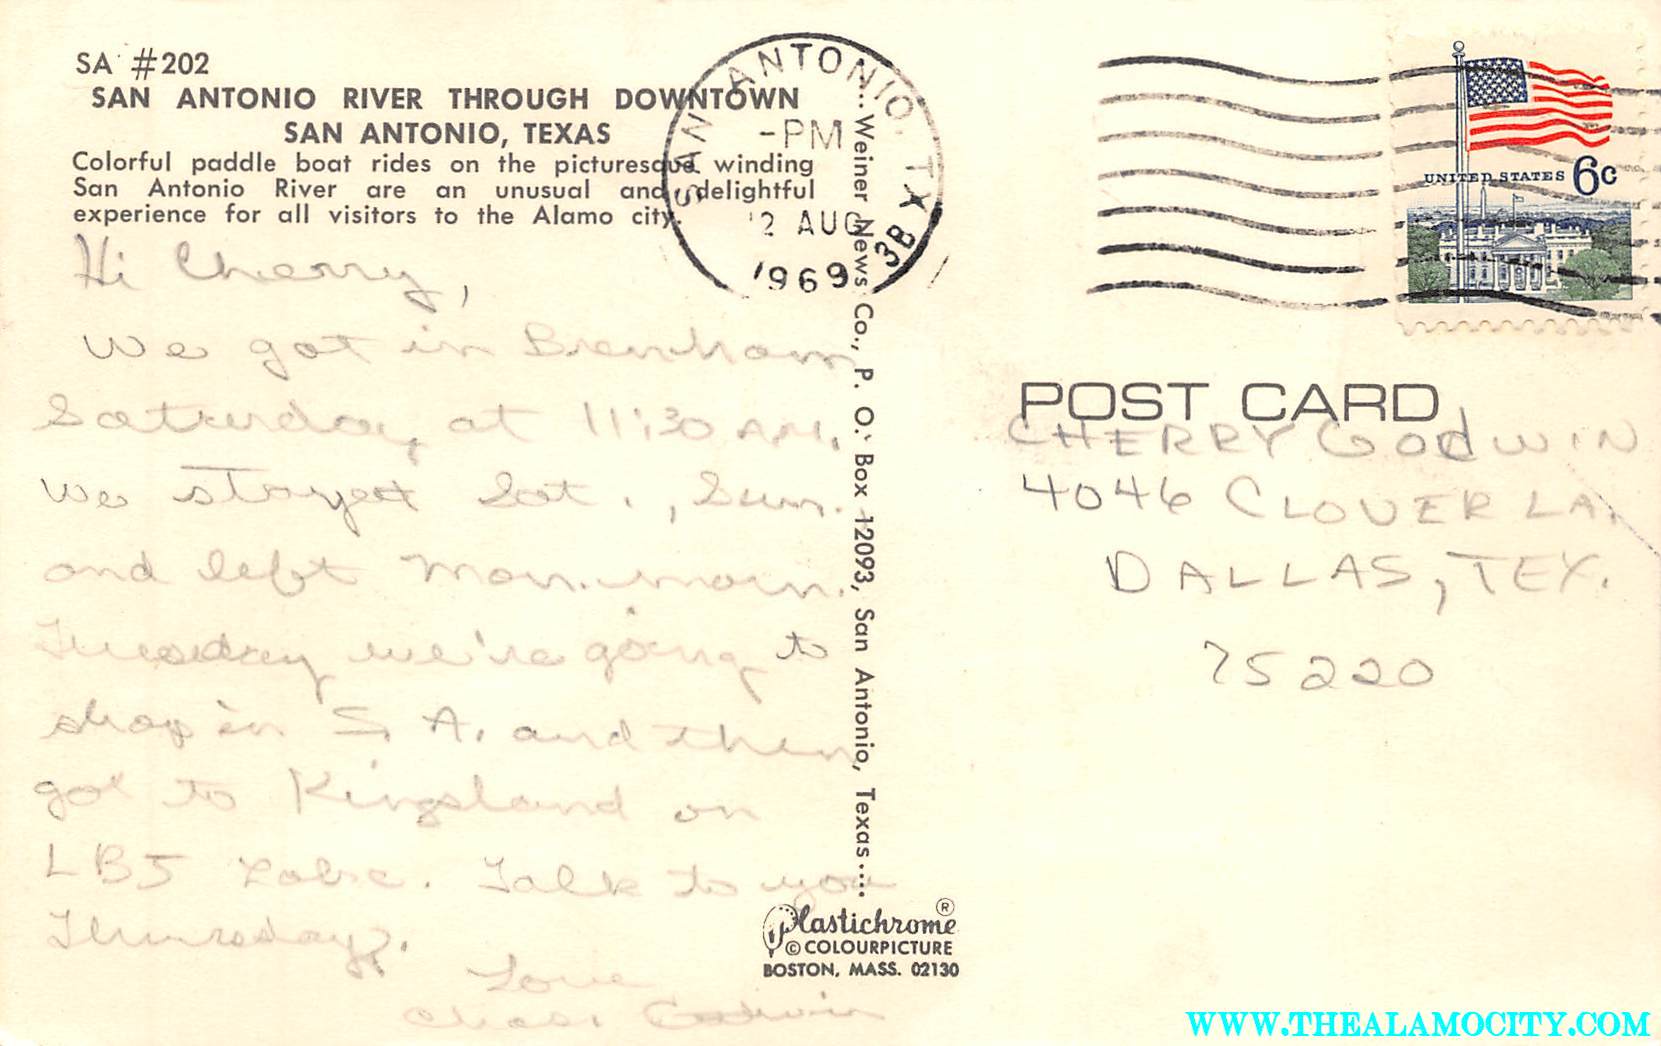 SA #202
SAN ANTONIO RIVER THROUGH DOWNTOWN
SAN ANTONIO, TEXAS
Colorful paddle boat rides on the picturesque winding
San Antonio River are an unusual and delightful
experience for all visitors to the Alamo city.
Hi Cherry,
We got in Brenham
Saturday at 11:30 AM.
We stayed Sat., Sun.
and left Mon. morn.
Tuesday we're going to
shop in S. A. and then
got to Kingsland on
LBJ Lake. Talk to you
Thursday.
Love
Chas. Godwin
SAN ANTONIO, TX
-PM
2 AUG
1969
3B
..Weiner News Co., P. O. Box 12093, San Antonio, Texas....
Plastichrome ®
© COLOURPICTURE
BOSTON, MASS. 02130
UNITED STATES 6c
POST CARD
CHERRY GODWIN
4046 CLOVER LA.
DALLAS, TEX.
75220
WWW.THEALAMOCITY.COM